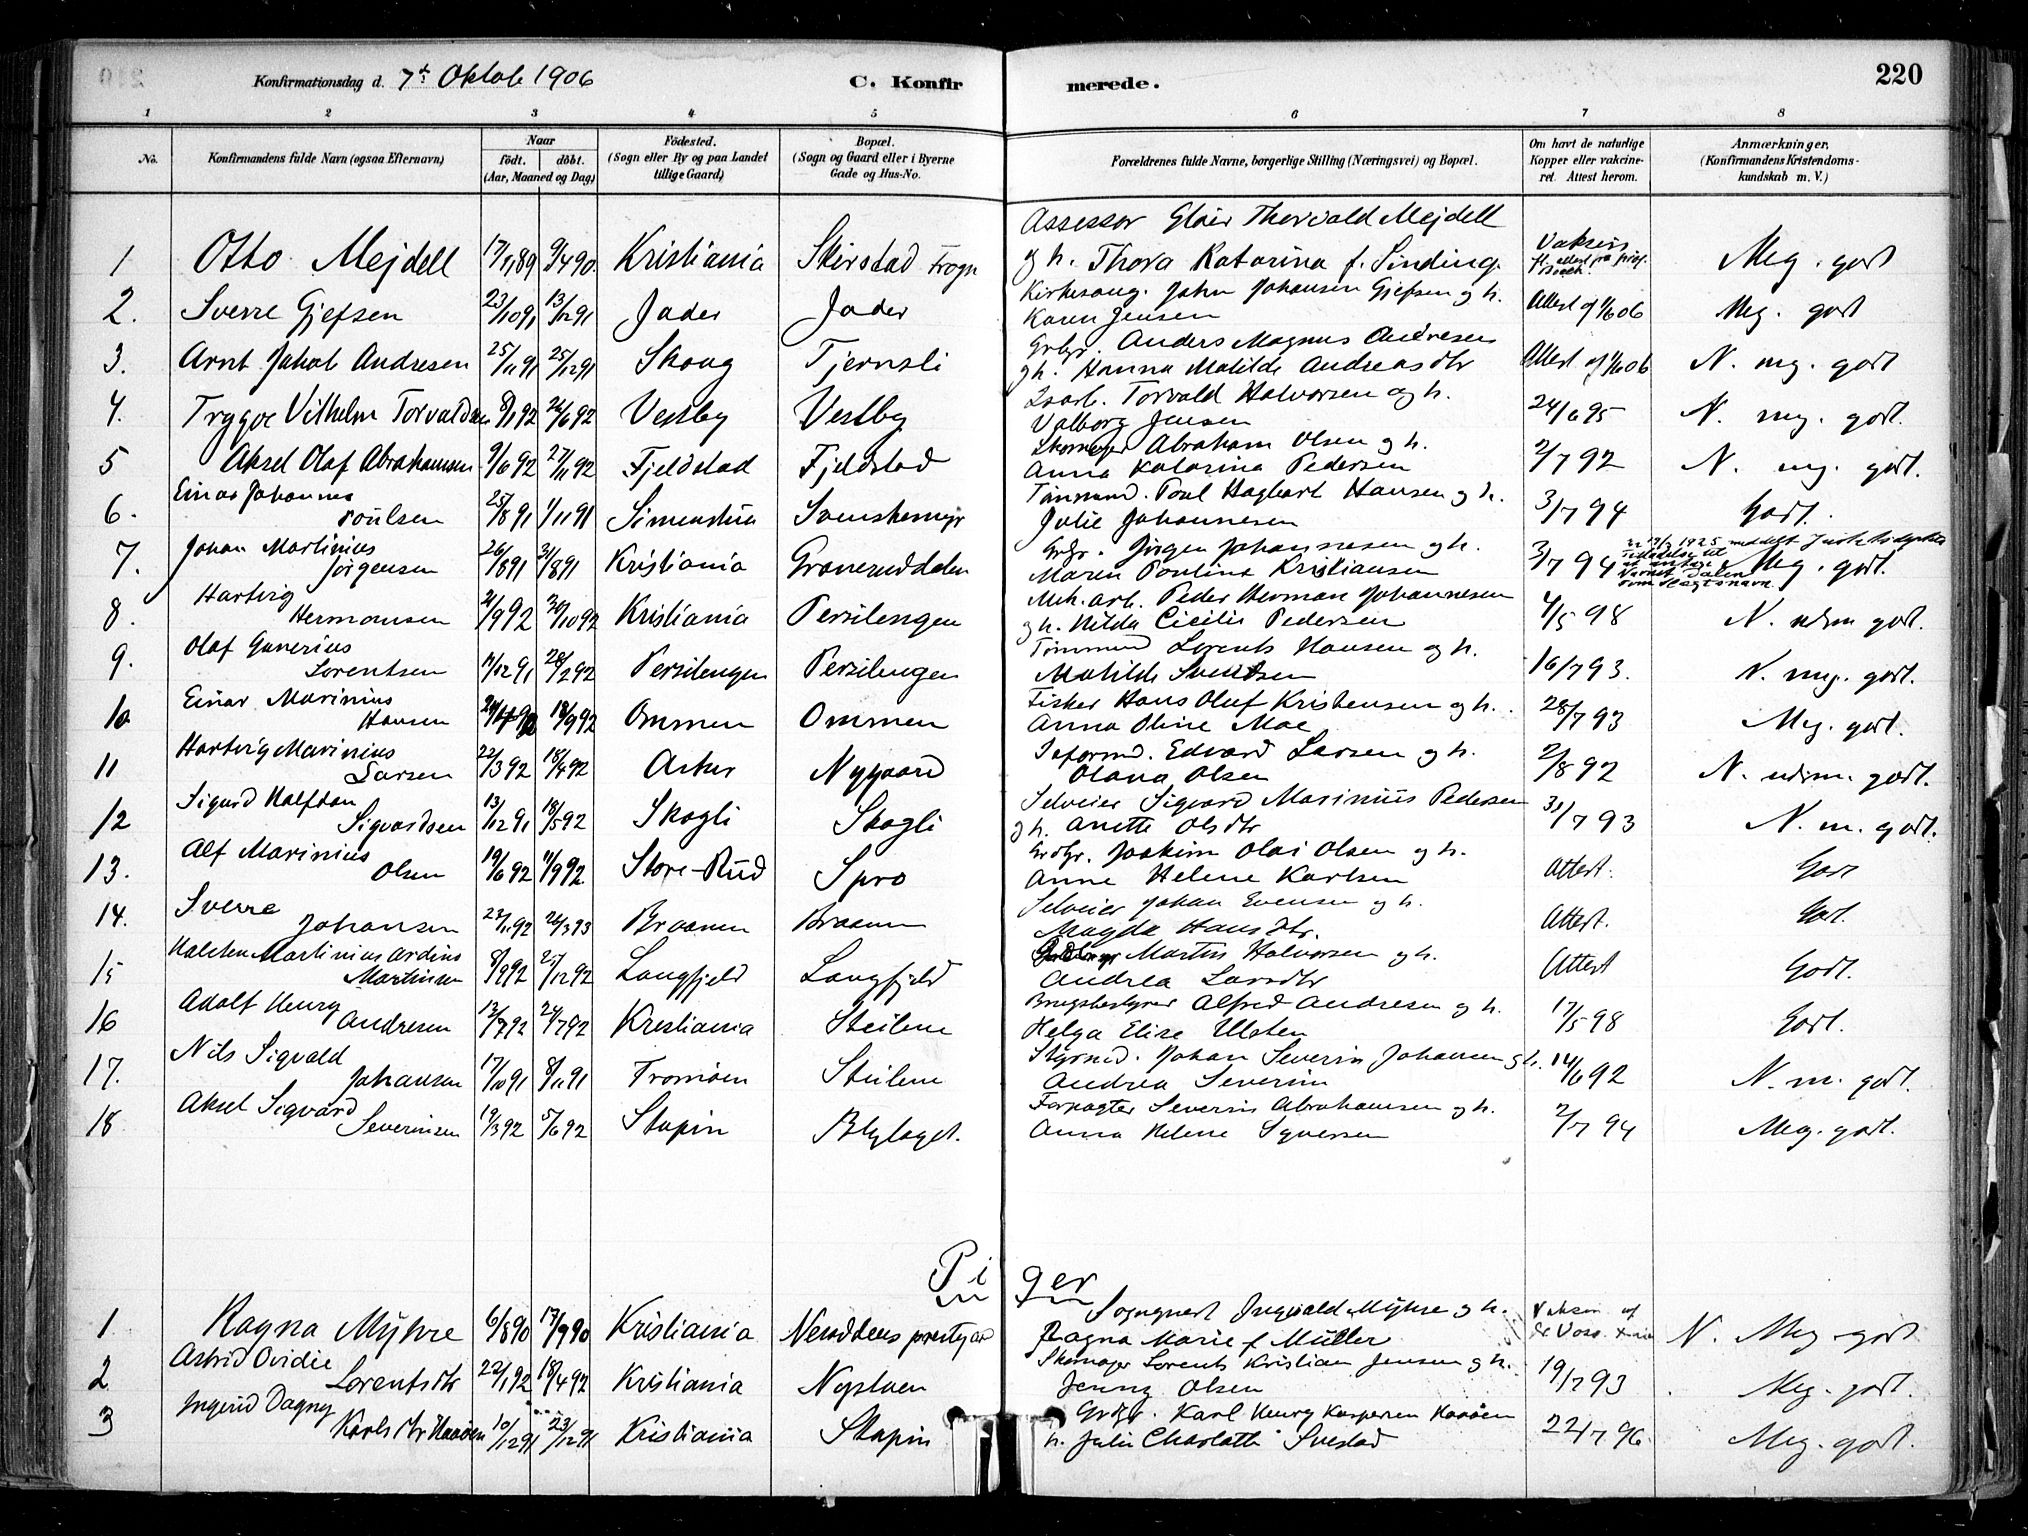 Konfirmationsdag d. 7de Oktob 1906 C. Konfirmerede. 220
1 2 3 4 5 6 7 8
No. Konfirmandens fulde Navn (ogsaa Efternavn) Naar födt. döbt. (Aar, Maaned og Dag) Födested. (Sogn eller By og paa Landet tillige Gaard) Bopæl. (Sogn og Gaard eller i Byerne Gade og Hus-No. Forældrenes fulde Navne, borgerlige Stilling (Næringsvei) og Bopæl. Om havt de naturlige Kopper eller vakcineret. Attest herom. Anmærkninger, (Konfirmandens Kristendomskundskab m. V.)
Assessor Glør Thorvald Mejdell
1 Otto Mejdell 17/11 89 9/4 90 Kristiania Skirstad Frogn og h. Thora Katarina f. Sinding. Vaksin Meg. godt
2. Sverre Gjefsen 23/10 91 13/12 91 Jader Jader Kirkesang. John Johansen Gjefsen og h. Karen Jensen Attest af 1/6 06 Meg. godt
3. Arnt Jakob Andresen 25/11 91 25/12 91 Skoug Tjernsli Grbgr. Anders Magnus Andresen og h. Hanna Matilde Andreasdtr Attest af 1/6 06 N. mg. godt
4. Trygve Vilhelm Torvaldsen 8/1 92 26/6 92 Vestby Vestby Torvald Halvorsen og h. Valborg Jensen 24/6 95 N. mg. godt.
5 Aksel Olaf Abrahamsen 9/6 92 27/11 92 Fjeldstad Fjeldstad Skomager Abraham Olsen og h. Anna Katarina Pedersen 2/7 92 N. mg. godt.
6. Einar Johannes Poulsen 25/8 91 1/11 91 Simenstua Svenskemyr Tömmermd. Poul Hagbart Hansen og h. Julie Johannesen 3/7 94 Godt.
7. Johan Martinius Jørgensen 26/8 91 31/8 91 Kristiania Graneruddalen Grdgr. Jørgen Johannesen og h. Maren Paulina Kristiansen 3/7 94 Meg. godt.
8. Hartvig Hermansen 2/9 92 20/10 92 Kristiania Persilengen Mek. arb. Peder Herman Johannesen og h. Hilda Cicilie Pedersen 4/5 98 N. udm godt.
9. Olaf Gunerius Lorentsen 11/12 91 28/2 92 Persilengen Persilengen Tömmermd Lorents Hansen og h. Matilde Svendsen 16/7 93. N. mg. godt.
10 Einar Marinius Hansen 18/9 92 Ommen Ommen Fisker Hans Oluf Kristensen og h. Anna Oline Moe 28/7 93 Meg. godt.
11 Hartvig Marinius Larsen 22/3 92 18/4 92 Askur Nygaard Edvard Larsen og h. Olava Olsen 2/8 92 N. udm. godt.
12 Sigurd Halfdan Sigvardsen 13/12 91 18/5 92 Skogli Skogli Selveier Sigvard Marinius Pedersen og h. Anette Olsdtr 31/7 93 N. m. godt.
13. Alf Marinius Olsen 19/6 92 11/9 92. Store-Rud Spro Grdbr. Joakim Olai Olsen og h. Anne Helene Karlsen Attest. Godt
14. Sverre Johansen 23/11 92 26/3 93 Braanen Braanen Selveier Johan Evensen og h. Magda Hansdtr. Attest. Godt.
15 Halsten Martinius Ardins Martinsen 8/9 92 25/12 92 Langfjeld Langfjeld Martin Halvorsen og h. Andrea Larsdtr Attest Godt.
16 Adolf Henry Andresen 12/7 92 24/7 92 Kristiania Steilene Brugsbestyrer Alfred Andresen og h. Helga Elise Ulsten 17/5 98 Godt.
17. Nils Sigvald Johansen 17/10 91 8/11 91 Tromöen Steilene Styrmd. Johan Severin Johansen og h. Andrea Severin 14/6 92 N. m. godt.
18 Aksel Sigvard Severinsen 19/3 92 5/6 92 Stupin Blylaget. Forpagter Severin Abrahamsen og h. Anna Helene Syversen 2/7 94 Meg. godt.
Piger
1 Ragna Myhre 6/8 90 17/9 90 Kristiania Nesoddens prestgar Sogneprest Ingvald Myhre og h. Ragna Marie f. Müller Vaksin af N. Meg. godt
2 Astrid Ovidie Lorentsdtr 22/1 92 18/4 92 Kristiania Nystuen Skomager Lorents Kristian Jensen og h. Jenny Olsen 19/7 93 Meg. godt.
3 Ingrid Dagny Karlsdtr Haaøen 10/12 91 23/12 91 Kristiania Stupin Grdbr. Karl Henry Kaspersen Haaøen h. Julie Charlotte Svestad 22/7 96. Meg. godt.